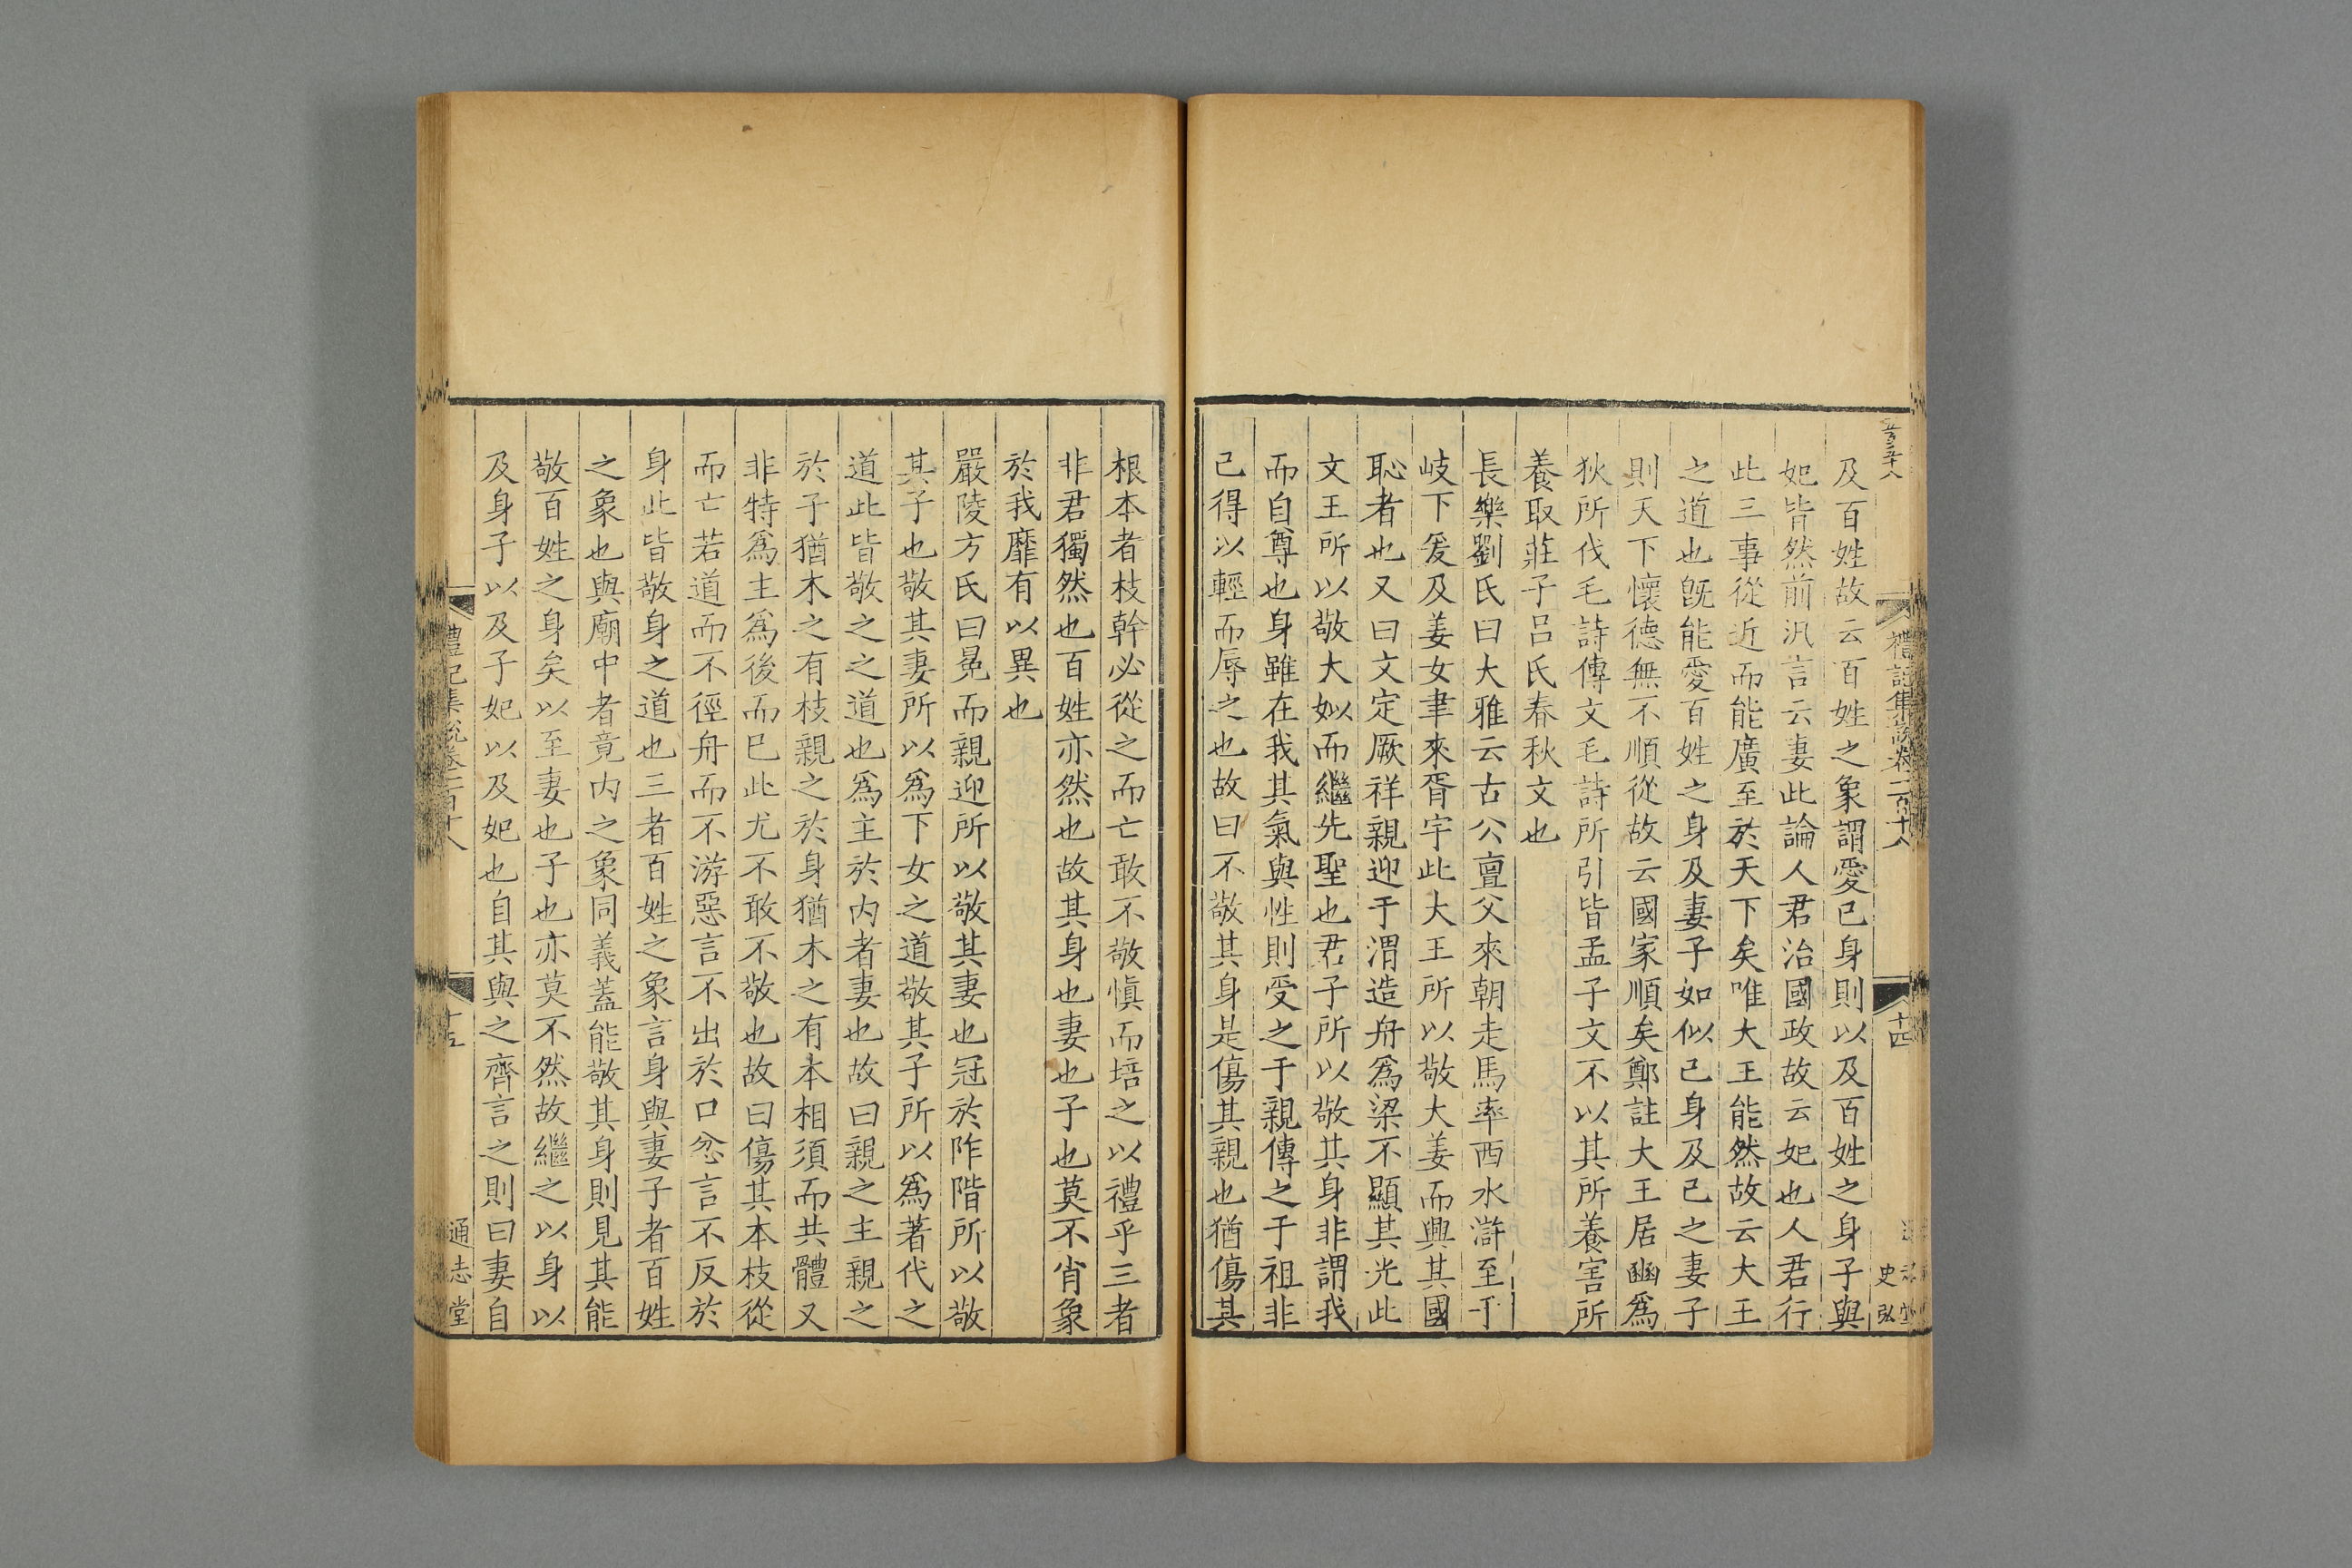 及百姓故云百姓之象謂愛己身則以及百姓之身子與
妃皆然前汎言云妻此論人君治國政故云妃也人君行
此三事從近而能廣至於天下矣唯大王能然故云大王
之道也旣能愛百姓之身及妻子如似己身及己之妻子
則天下懷德無不順從故云國家順矣鄭註大王居豳爲
狄所伐毛詩傳文毛詩所引皆孟子文不以其所養害所
養取莊子呂氏春秋文也
長樂劉氏曰大雅云古公亶父來朝走馬率西水滸至于
岐下爰及姜女聿來胥宇此大王所以敬大姜而興其國
恥者也又曰文定厥祥親迎于渭造舟爲梁不顯其光此
文王所以敬大姒而繼先聖也君子所以敬其身非謂我
而自尊也身雖在我其氣與性則受之于親傳之于祖非
己得以輕而辱之也故曰不敬其身是傷其親也猶傷其
禮記集說卷一百十八
十四
史弘
根本者枝幹必從之而亡敢不敬愼而培之以禮乎三者
非君獨然也百姓亦然也故其身也妻也子也莫不肖象
於我靡有以異也
嚴陵方氏曰冕而親迎所以敬其妻也冠於阼階所以敬
其子也敬其妻所以爲下女之道敬其子所以爲著代之
道此皆敬之之道也爲主於內者妻也故曰親之主親之
於子猶木之有枝親之於身猶木之有本相須而共體又
非特爲主爲後而巳此尤不敢不敬也故曰傷其本枝從
而亡若道而不徑舟而不游惡言不出於口忿言不反於
身此皆敬身之道也三者百姓之象言身與妻子者百姓
之象也與廟中者竟內之象同義蓋能敬其身則見其能
敬百姓之身矣以至妻也子也亦莫不然故繼之以身以
及身子以及子妃以及妃也自其與之齊言之則曰妻自
禮記集說卷一百十八
十五
通志堂